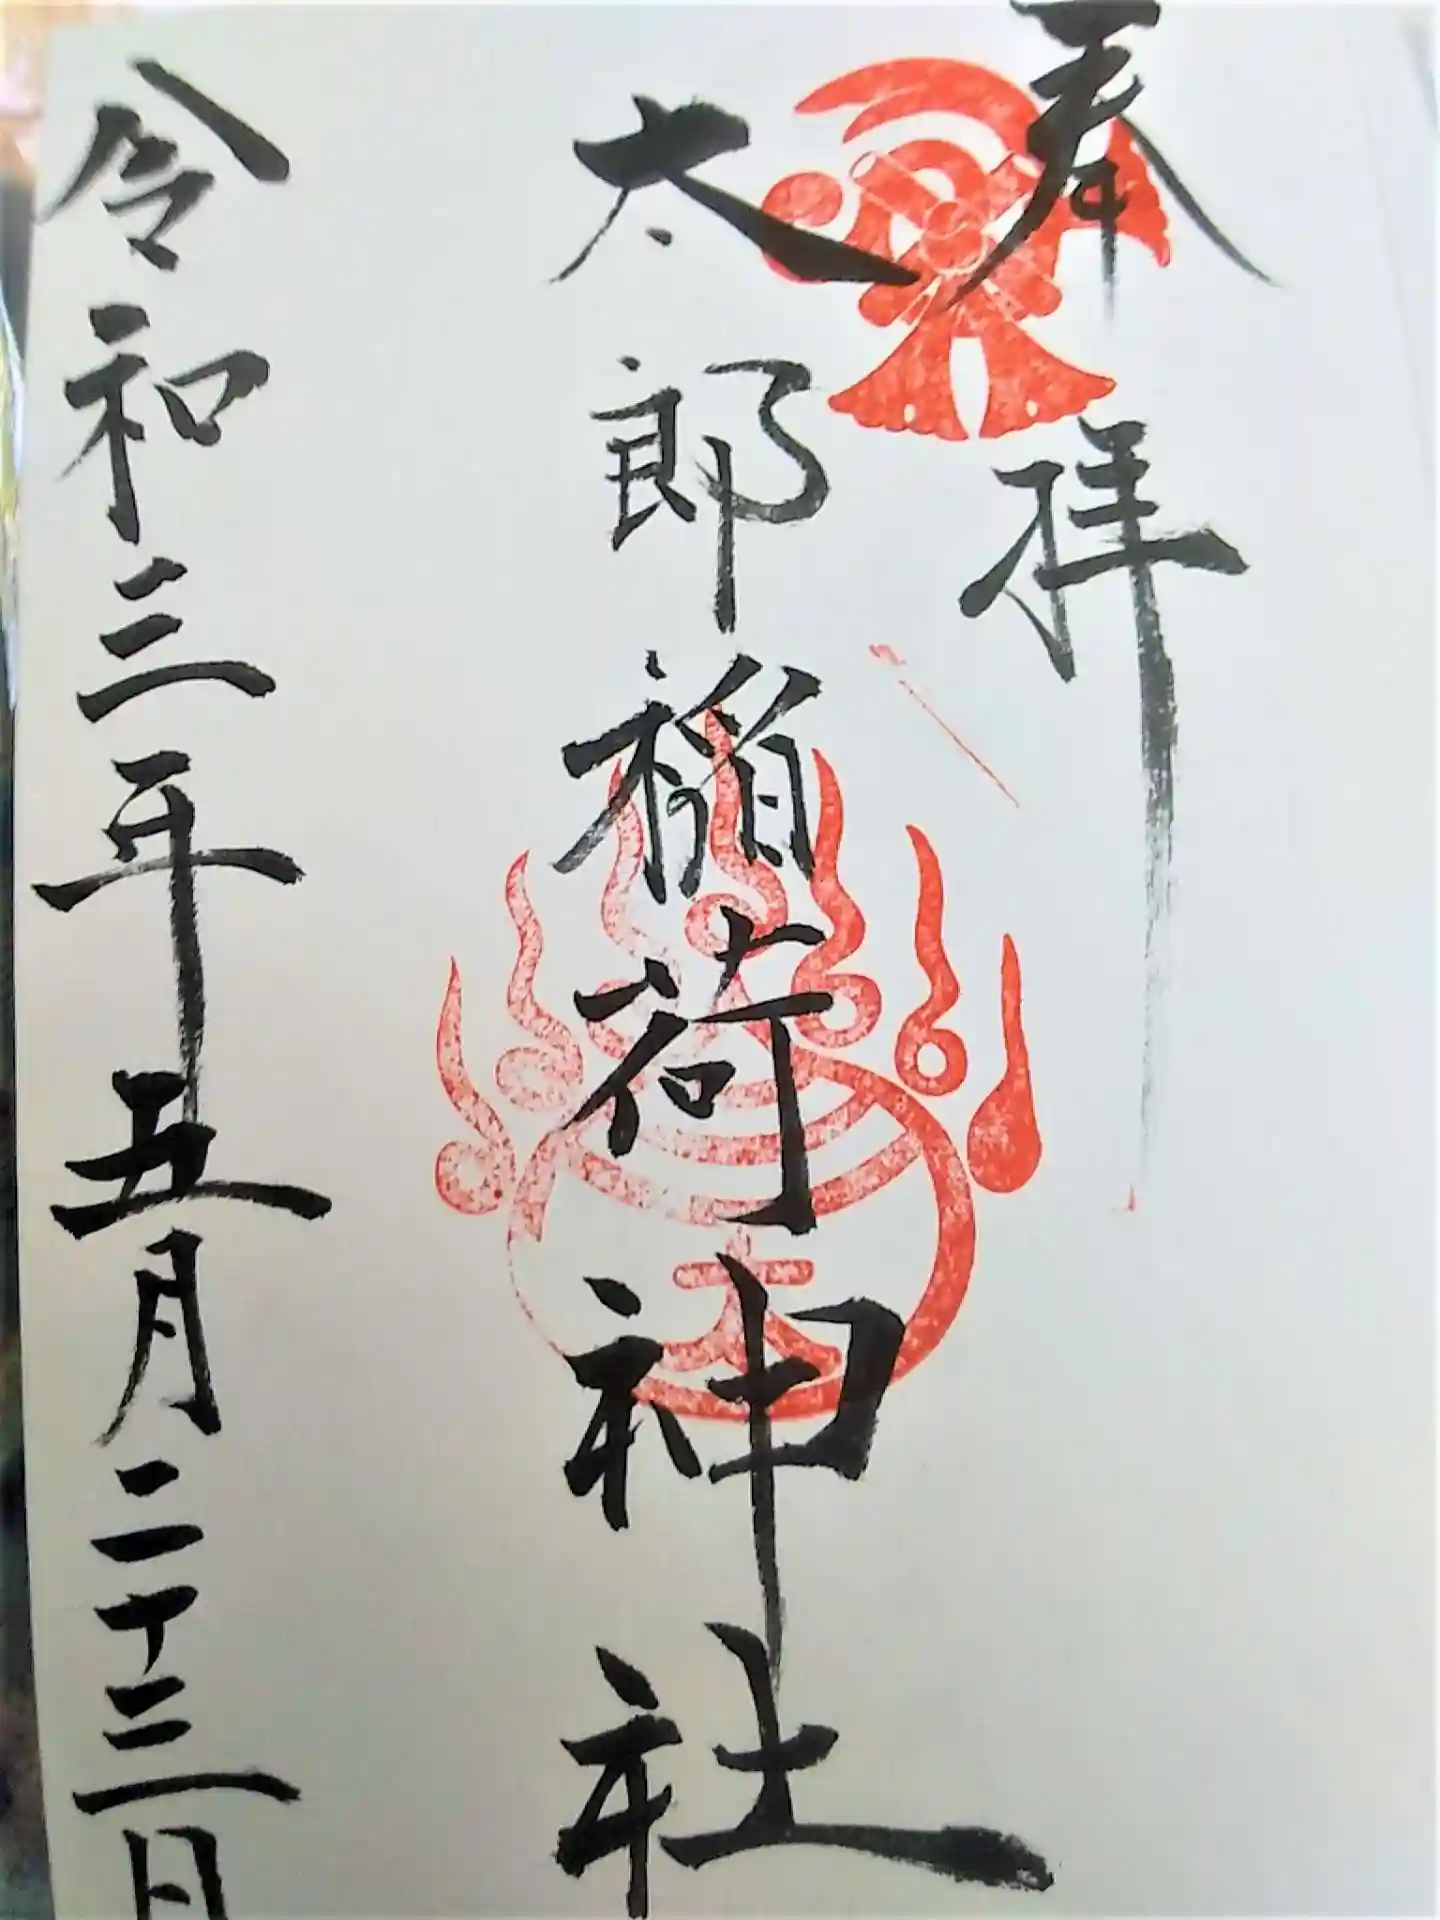 奉拝
太郎稲荷神社
令和三年五月二十三日